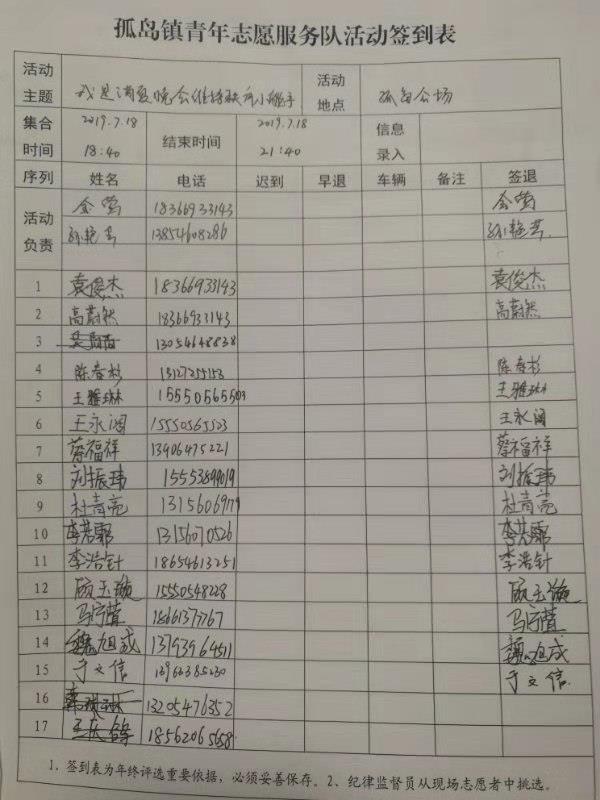 孤岛镇青年志愿服务队活动签到表
活动主题 我是消夏晚会维持秩序小能手 活动地点 孤岛会场
集合时间 2019.7.18 18:40 结束时间 2019.7.18 21:40 信息录入
序列 姓名 电话 迟到 早退 车辆 备注 签退
活动负责 金莺 18366933143 金莺
孙艳芸 13854608286 孙艳芸
1 袁俊杰 18366933143 袁俊杰
2 高蔚然 18366933143 高蔚然
3 13054648838
4 陈春杉 13127255153 陈春杉
5 王雅琳 15550565503 王雅琳
6 王永阔 15550565523 王永阔
7 蔡福祥 13406475221 蔡福祥
8 刘振玮 15553899019 刘振玮
9 杜青亮 1315606979 杜青亮
10 李芳霏 13156070526 李芳霏
11 李浩针 18654613251 李浩针
12 顾玉璇 15550548228 顾玉璇
13 马宁萱 15661377767 马宁萱
14 魏旭成 13793964511 魏旭成
15 于文信 于文信
16 13205476352
17 18562065658
1、签到表为年终评选重要依据，必须妥善保存。2、纪律监督员从现场志愿者中挑选。